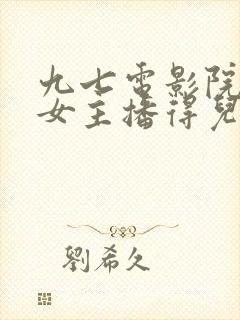 九七電影院
女主播得兒
劉希久